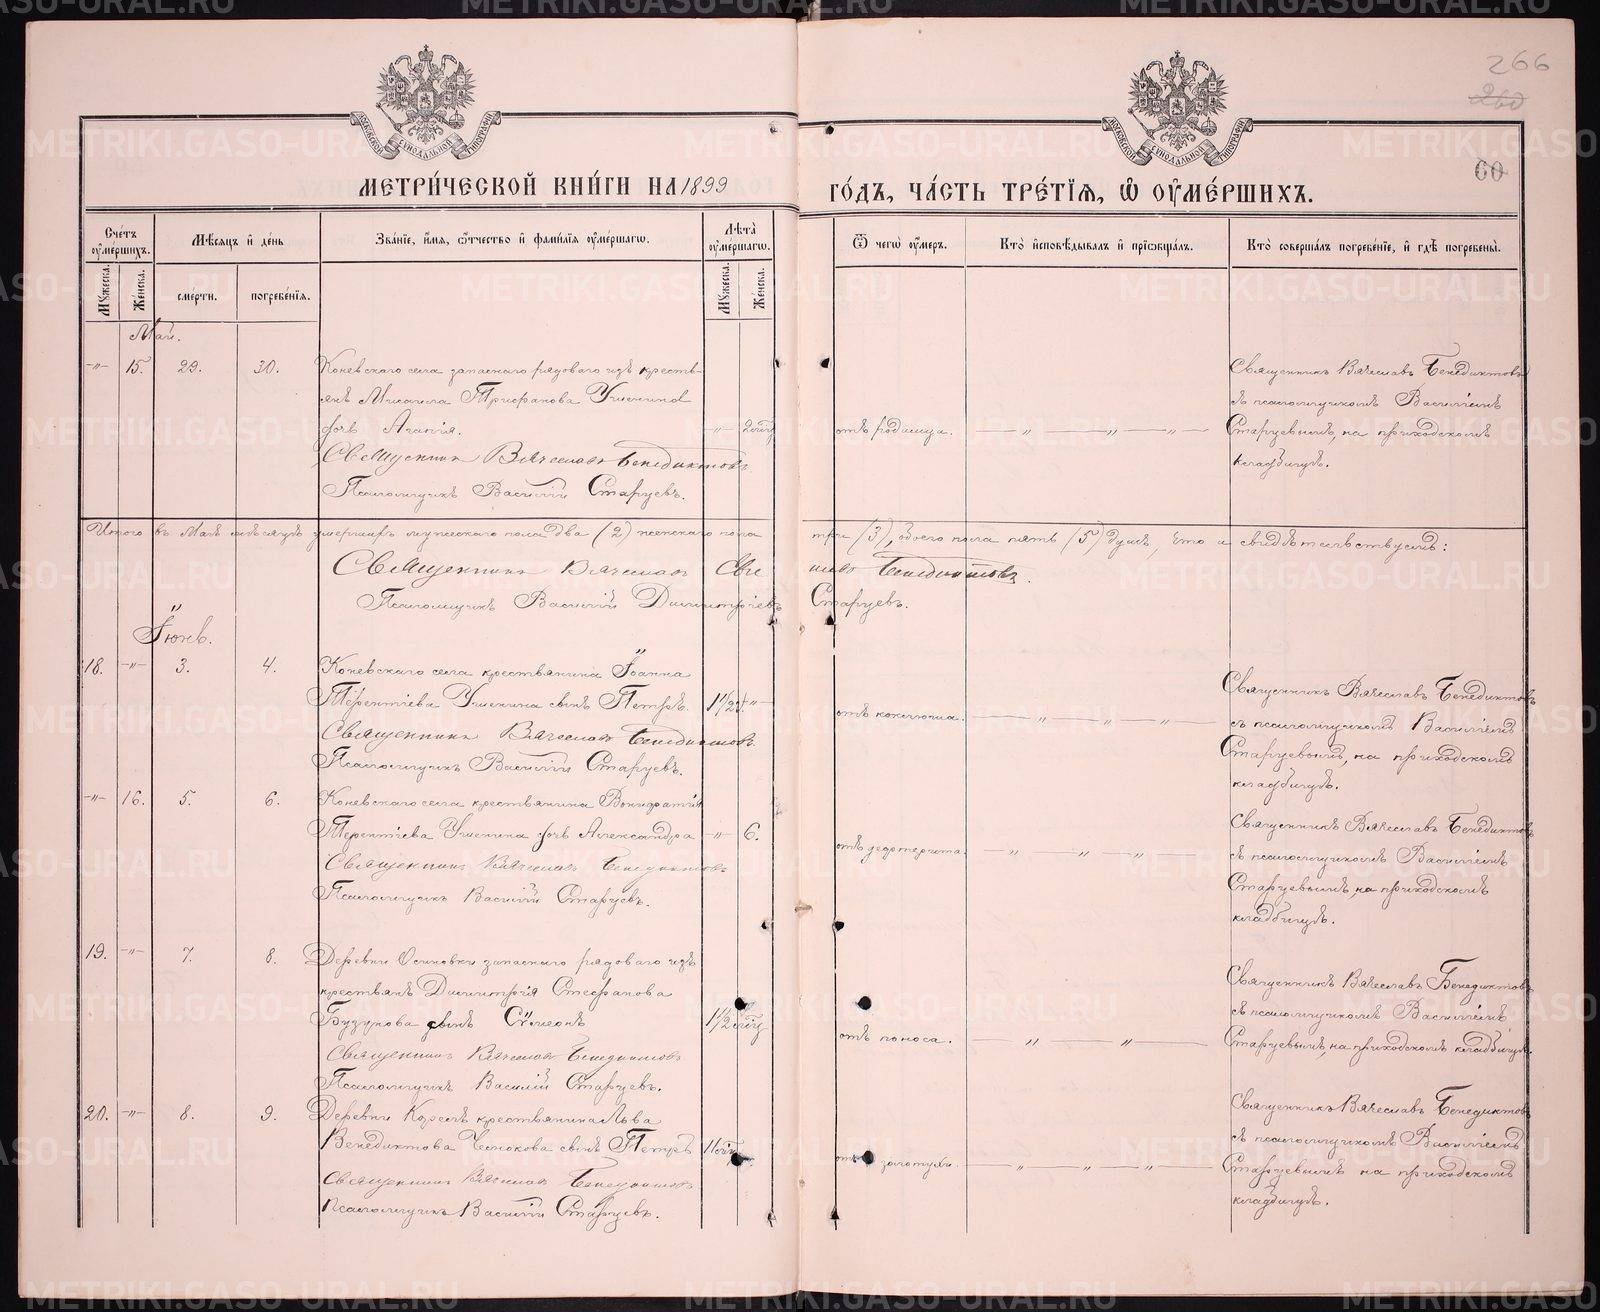 266
260
60
МОСКОВСКОЙ СѴНОДАЛЬНОЙ ТИПОГРАФІИ
МОСКОВСКОЙ СѴНОДАЛЬНОЙ ТИПОГРАФІИ
МЕТРИ́ЧЕСКОЙ КНИ́ГИ НА 1899 ГО́ДЪ, ЧА́СТЬ ТРЕ́ТІЯ, Ѡ ОУМЕ́РШИХЪ.
Счетъ оумершихъ.
Мужеска.
Женска.
Мѣсяцъ и день
смерти.
погребенія.
Званіе, имя, отчество и фамилія оумершагѡ.
Лѣта оумершагѡ.
Мужеска.
Женска.
Ѿ чегѡ оумеръ.
Кто исповѣдывалъ и пріѡбщалъ.
Кто совершалъ погребеніе, и гдѣ погребены.
Май.
-"- 15. 29. 30.
Коневскаго села запаснаго рядоваго изъ кресть-
янъ Мисаила Трифанова Ушенина
дочь Агапія.
Священникъ Вячеславъ Бенедиктовъ
Псаломщикъ Василій Старцевъ.
отъ родимца. — " — " —
Священникъ Вячеславъ Бенедиктовъ
съ псаломщикомъ Василіемъ
Старцевымъ, на приходскомъ
кладбищѣ.
Итого въ Маѣ мѣсяцѣ умершихъ мужескаго пола два (2) женскаго пола три (3), обоего пола пять (5) душъ, что и свидѣтельствуемъ:
Священникъ Вячеславъ Бенедиктовъ.
Псаломщикъ Василій Димитріевъ Старцевъ.
Іюнь.
18. -"- 3. 4.
Коневскаго села крестьянина Іоанна
Терентіева Ушенина сынъ Петръ. 1½ -"-
Священникъ Вячеславъ Бенедиктовъ
Псаломщикъ Василій Старцевъ.
отъ коклюша. — " — " —
Священникъ Вячеславъ Бенедиктовъ
съ псаломщикомъ Василіемъ
Старцевымъ, на приходскомъ
кладбищѣ.
-"- 16. 5. 6.
Коневскаго села крестьянина Вонифатія
Терентіева Ушенина дочь Александра -"- 6.
Священникъ Вячеславъ Бенедиктовъ
Псаломщикъ Василій Старцевъ.
отъ дифтерита. — " — " —
Священникъ Вячеславъ Бенедиктовъ
съ псаломщикомъ Василіемъ
Старцевымъ, на приходскомъ
кладбищѣ.
19. -"- 7. 8.
Деревни Осиновки запаснаго рядоваго изъ
крестьянъ Димитрія Стефанова
Бузунова сынъ Сѵмеонъ 1½
Священникъ Вячеславъ Бенедиктовъ
Псаломщикъ Василій Старцевъ.
отъ поноса. — " — " —
Священникъ Вячеславъ Бенедиктовъ
съ псаломщикомъ Василіемъ
Старцевымъ, на приходскомъ кладбищѣ.
20. -"- 8. 9.
Деревни Корелъ крестьянина Льва
Венедиктова Чеснокова сынъ Петръ
Священникъ Вячеславъ Бенедиктовъ
Псаломщикъ Василій Старцевъ.
отъ золотухи. — " — " —
Священникъ Вячеславъ Бенедиктовъ
съ псаломщикомъ Василіемъ
Старцевымъ на приходскомъ
кладбищѣ.
METRIKI.GASO-URAL.RU